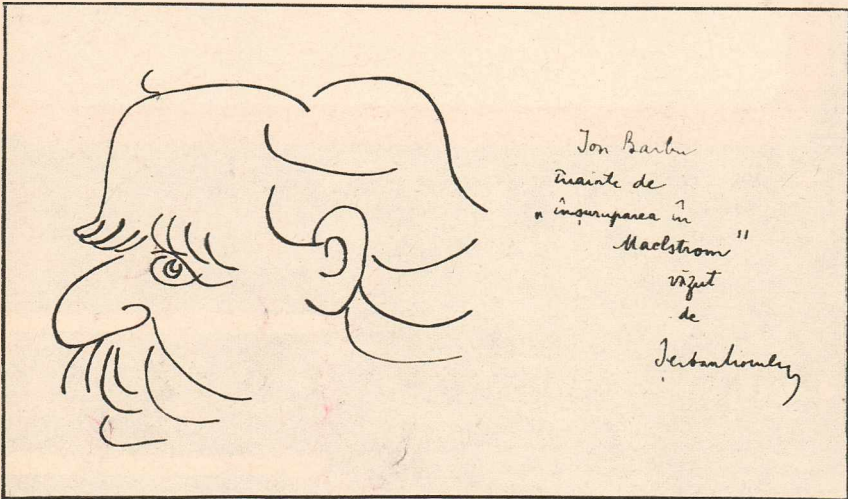 Ion Barbu
înainte de
„înșuruparea în
Maelstrom"
văzut
de
Șerban Cioculescu